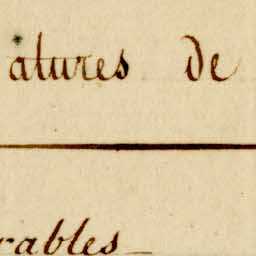 atures de
rables